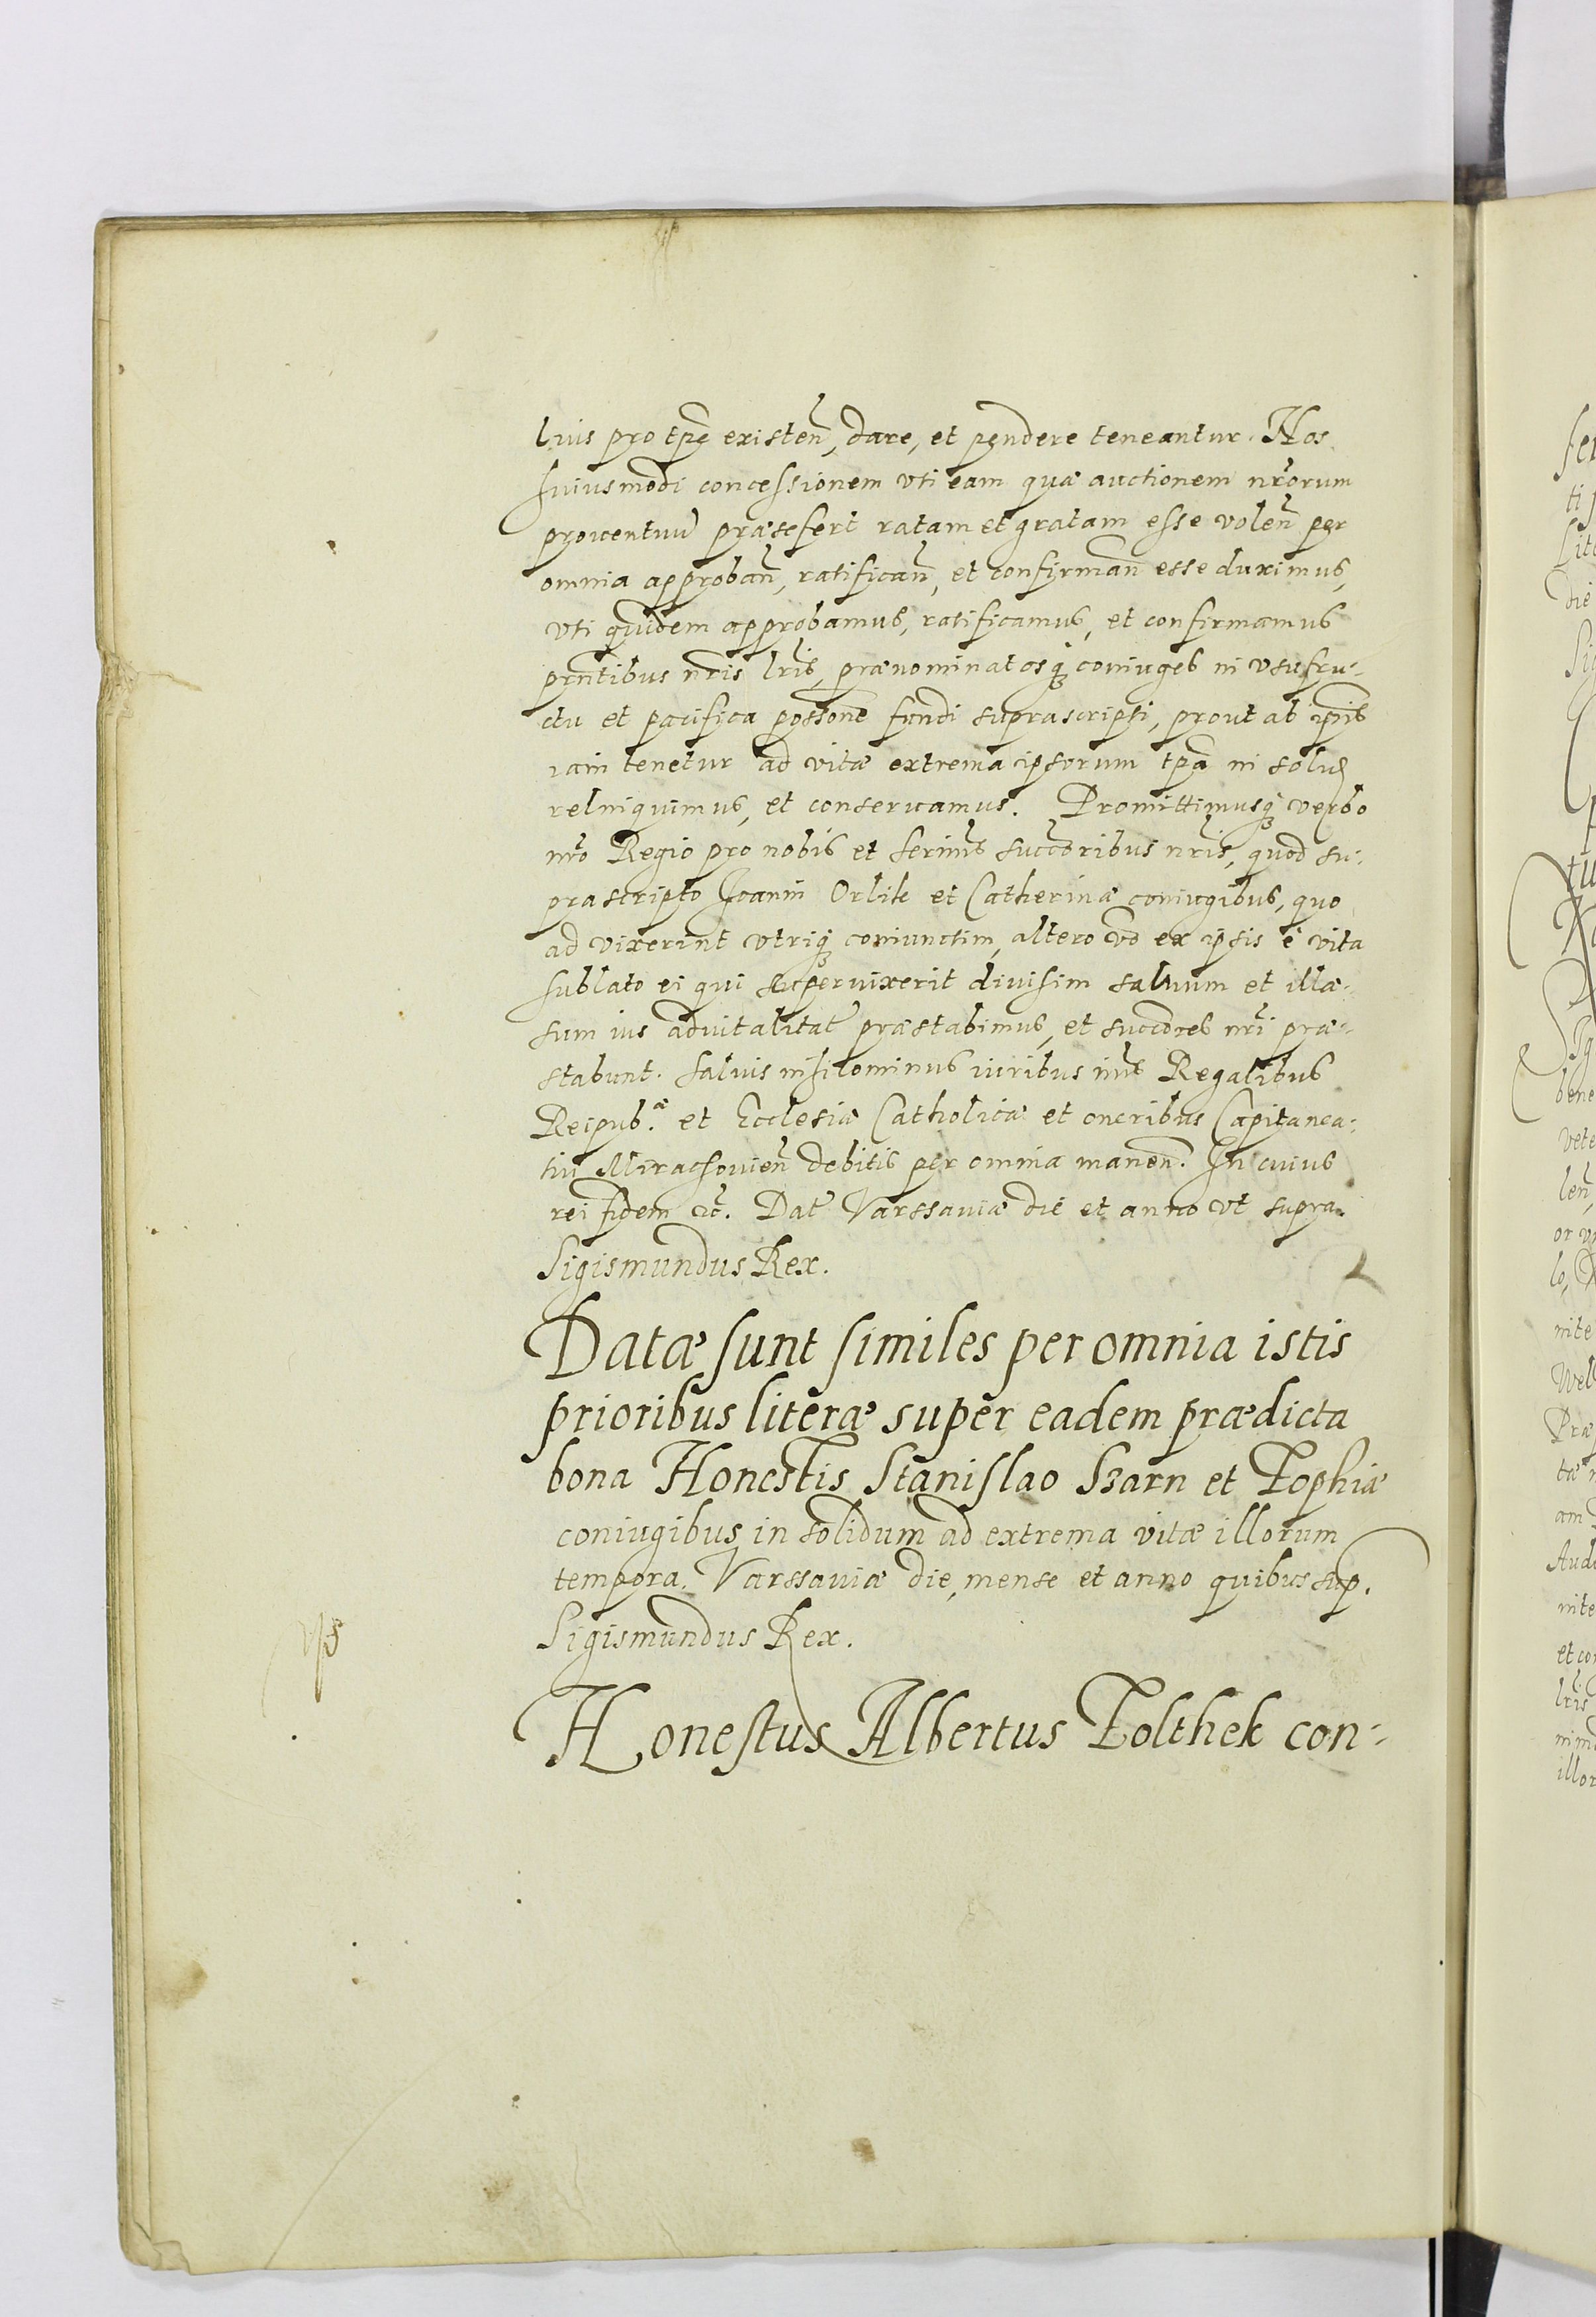 lius pro tpe existeñ, dare, et pendere teneantur. Nos
huiusmodi concessionem uti eam quæ auctionem nrorum
prouentuum præsefert ratam et gratam esse voleñ per
omnia approbañ, ratificañ, et confirmañ esse duximus,
uti quidem approbamus, ratificamus, et confirmamus
prñtibus nris lris, prænominatosq coniuges in usufru-
ctu et pacifica possone fundi suprascripti, prout ab ipsis
iam tenetur ad vitæ extrema ipsorum tpa in solid
relinquimus, et conseruamus. Promittimusq verbo
nro Regio pro nobis et Serimis succoribus nris, quod su-
prascripto Joanni Orlik et Catherinæ coniugibus, quo
ad vixerint utriq coniunctim, altero vo ex ipsis è vita
sublato ei qui superuixerit diuisim saluum et illæ-
sum ius aduitalitat præstabimus, et succores nri præ-
stabunt. Saluis nihilominus iuribus nris Regalibus
Reipub.æ et Ecclesiæ Catholicæ et oneribus Capitanea-
tui Mirachouieñ debitis per omnia maneñ. In cuius
rei fidem etc. Dat Varssauiæ die et anno ut supra.
Sigismundus Rex.
Datæ sunt similes per omnia istis
prioribus literæ super eadem prædicta
bona Honestis Stanislao Szarn et Zophiæ
coniugibus in solidum ad extrema vitæ illorum
tempora. Varssauiæ die, mense et anno quibus sup.
Sigismundus Rex.
Honestus Albertus Zolthek con-